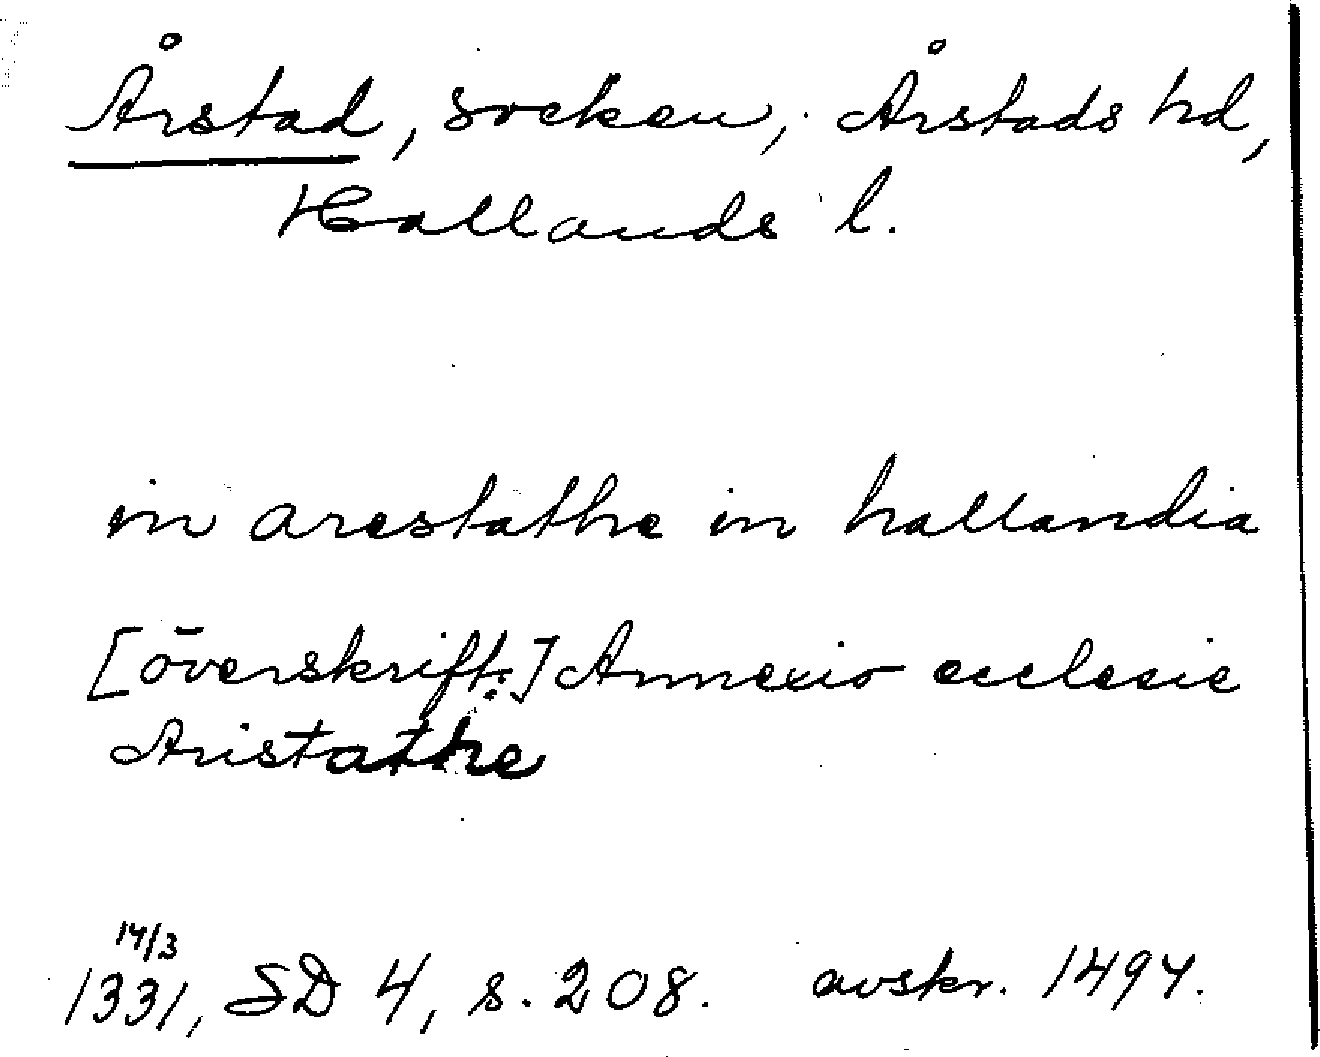 Årstad, socken, Årstads hd,
Hallands l.
in arestathe in hallandia
[överskrift:] Annexio ecclesie
Aristathe
14/3
1331, SD 4, s. 208. avskr. 1494.